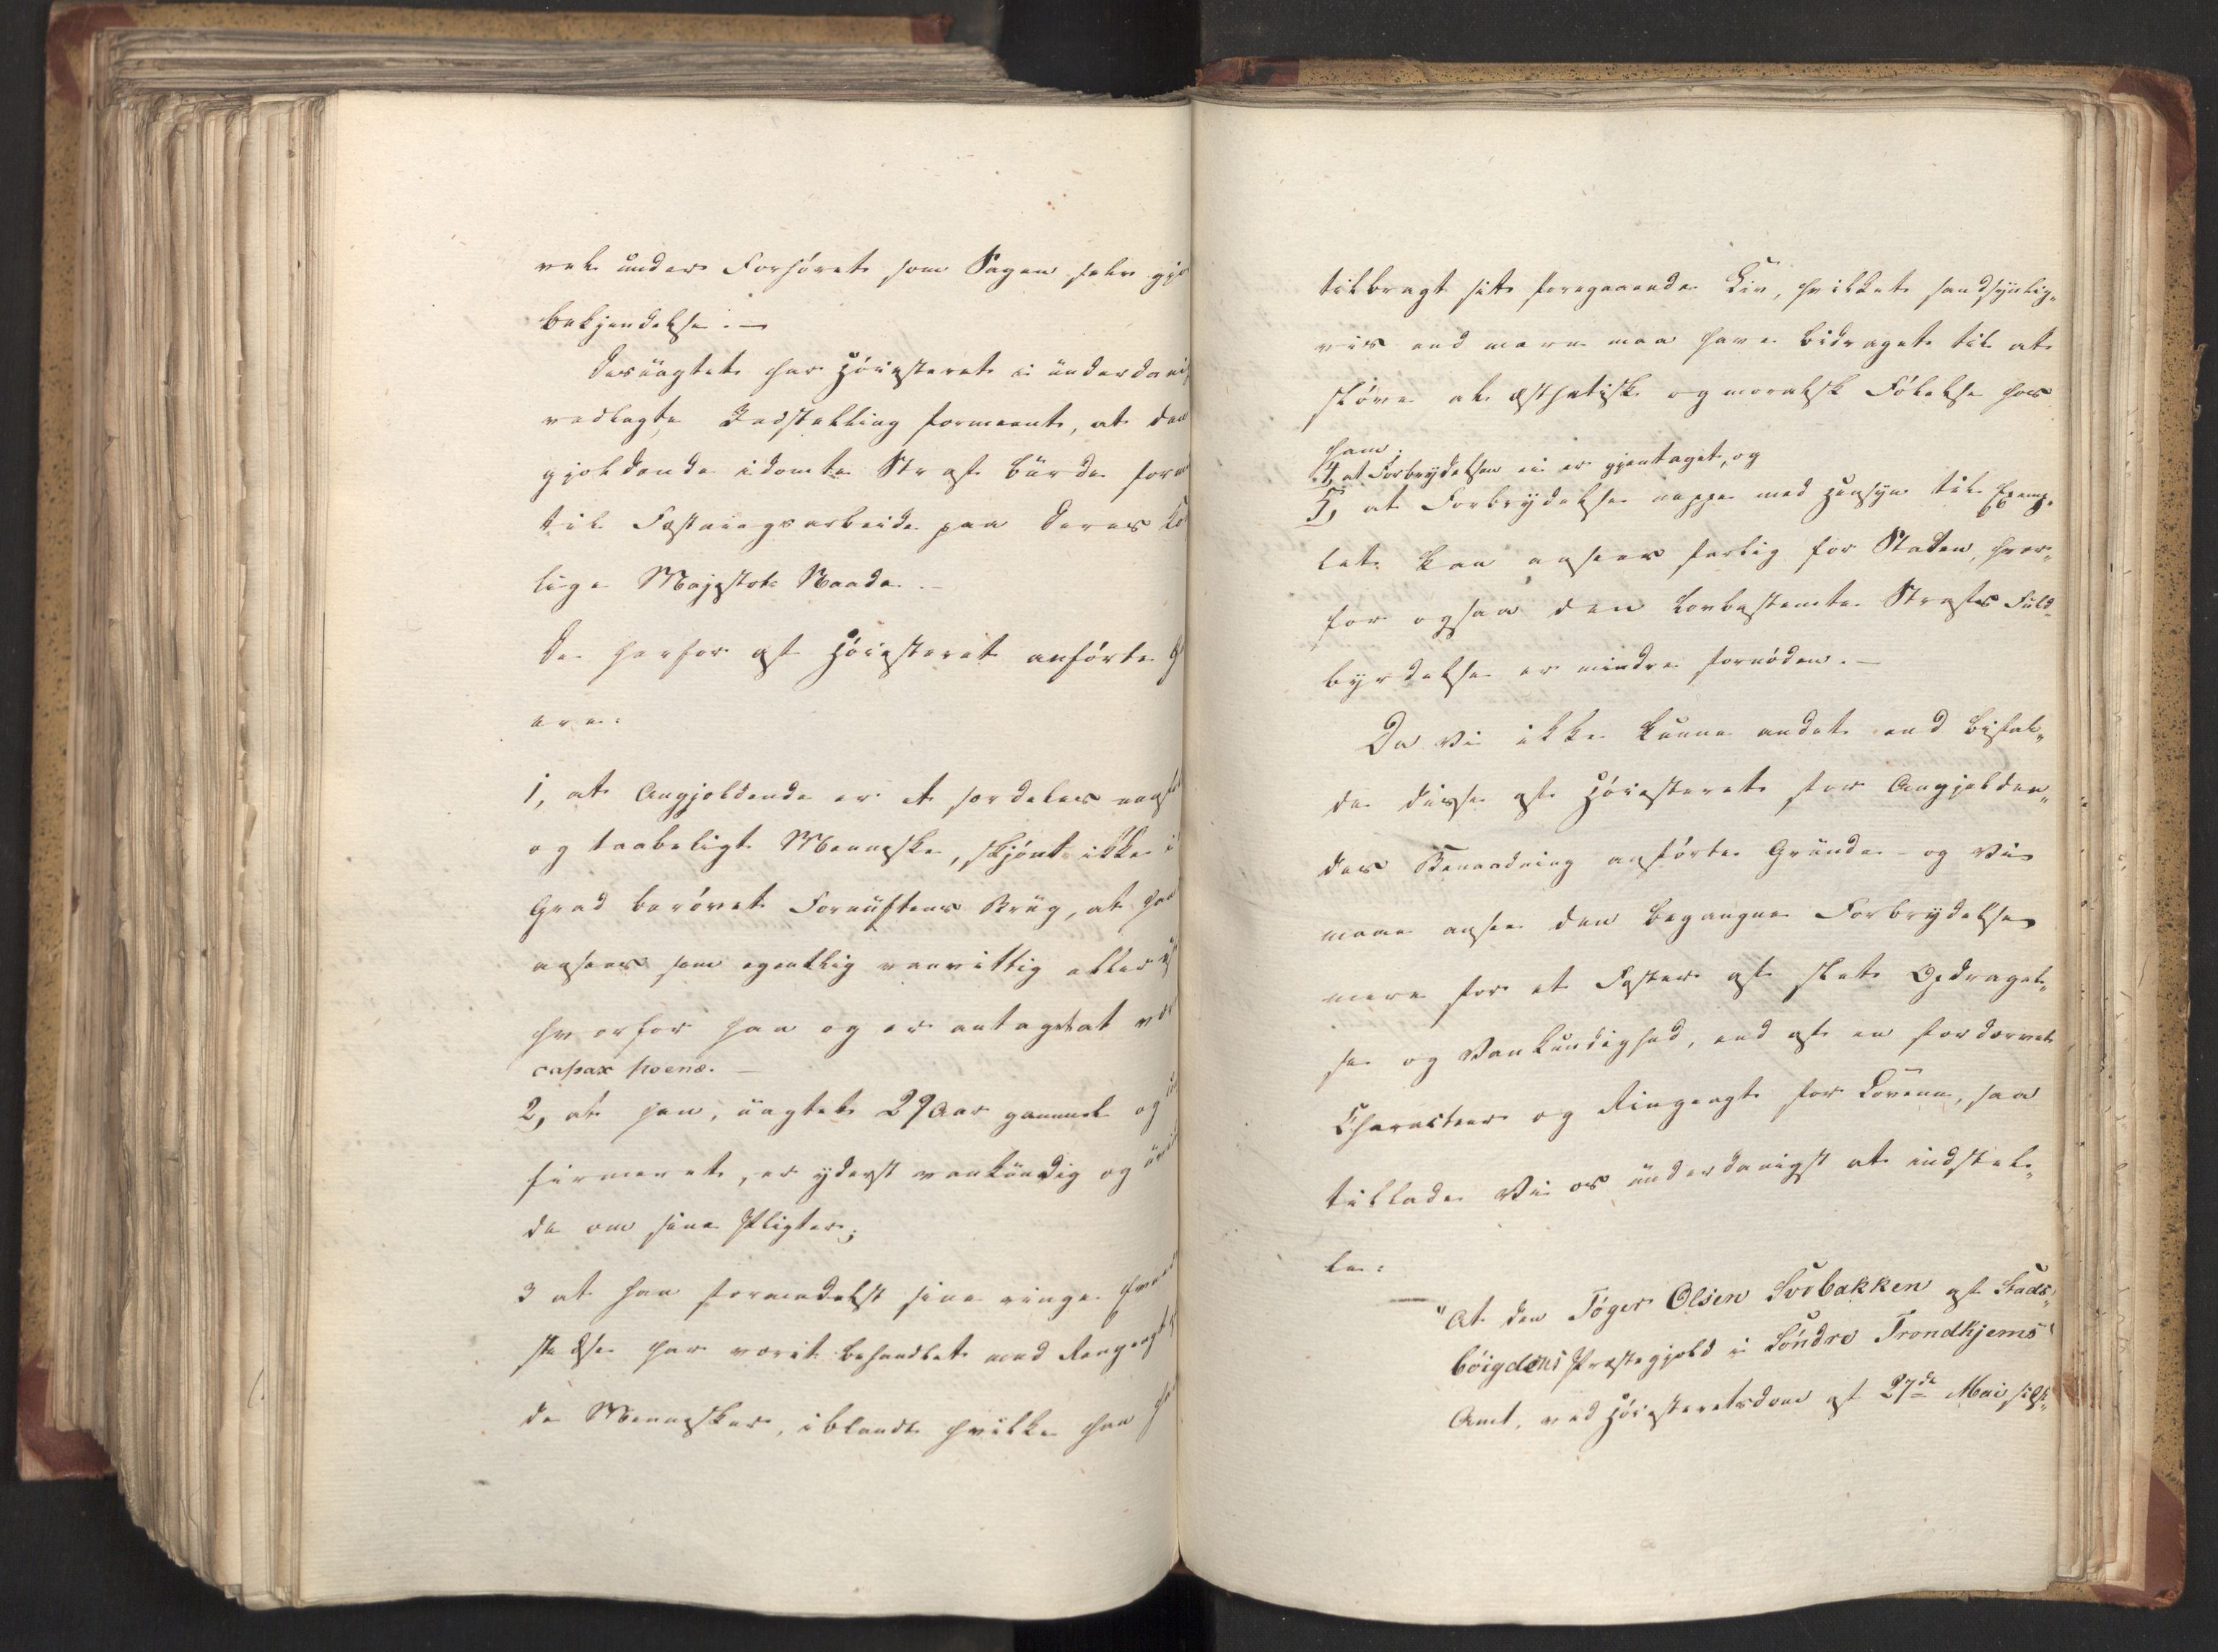 vel under Forhöret som Sagen selv gjo
bekjendelse. —
Desuagtet har Höiesteret i underdanig
vedlagte Indstilling formeent, at den
gjeldende idömte Straf burde forv
til Fæstningsarbeide paa Deres Ko
lige Majestæts Naade. —
De herfor af Höiesteret anförte G
ere:
1, at Angjeldende er et særdeles
og taabeligt Menneske, skjönt ikke i
Grad berövet Fornuftens Brug, at han
ansees som egentlig vanvittig eller
hvorfor han og er antaget at vær
capax poenæ. —
2, at han, uagtet 29 Aar gammel og
firmeret, er yderst vankundig og
de om sine Pligter;
3 at han formedelst sine ringe
stelse har været behandlet med Ringeagt
de Mennesker, iblandt hvilke han
tilbragt sit foregaaende Liv, hvilket sandsynlig„
viis end mere maa have bidraget til at
slöve al æsthetisk og moralsk Fölelse hos
ham;
4, at Forbrydelsen ei er gjentaget, og
5, at Forbrydelse neppe med Hensyn til Exemp„
let kan ansees farlig for Staten, hvor„
for ogsaa den lovbestemte Strafs Fuld„
byrdelse er mindre fornöden. —
Da vi ikke kunne andet end bifal„
de disse af Höiesteret for Angjelden„
des Benaadning anförte Grunde - og Vi
maae ansee den begangne Forbrydelse
mere for et Foster af slet Opdragel„
se og Vankundighed, end af en fordærvet
Characteer og Ringeagt for Lovene, saa
tillade Vi os underdanigst at indstil„
le:
— "At den Töger Olsen Svebakken af Stads„
böigdens Præstegjeld i Söndre Trondhjems
Amt, ved Höiesteretsdom af 27de Mai sidst„